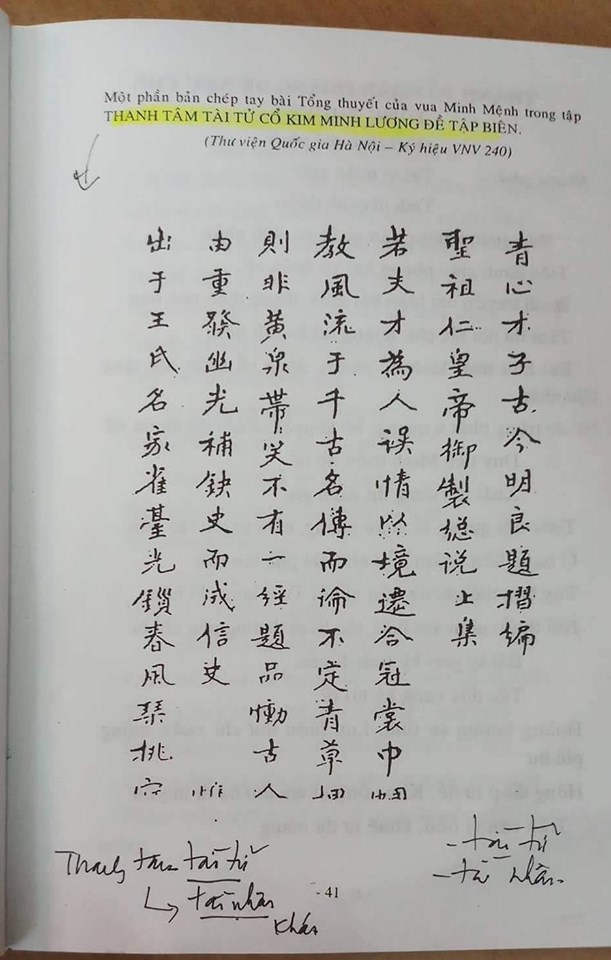 Một phần bản chép tay bài Tổng thuyết của vua Minh Mệnh trong tập
THANH TÂM TÀI TỬ CỔ KIM MINH LƯƠNG ĐỀ TẬP BIÊN.
(Thư viện Quốc gia Hà Nội – Ký hiệu VNV 240)
青心才子古今明良題摺編
聖祖仁皇帝御製総说上集
若夫才為人误情以境遷合冠裳巾幗
教風流于千古名傳而論不定青草
則非黃泉帶笑不有一經題品慟古人
由重發幽光補缺史而成信史惟
出于王氏名家雀臺光鎖春風琴挑
Thanh tâm tài tử
tài nhân
khác
- tài tử
- tài nhân
- 41